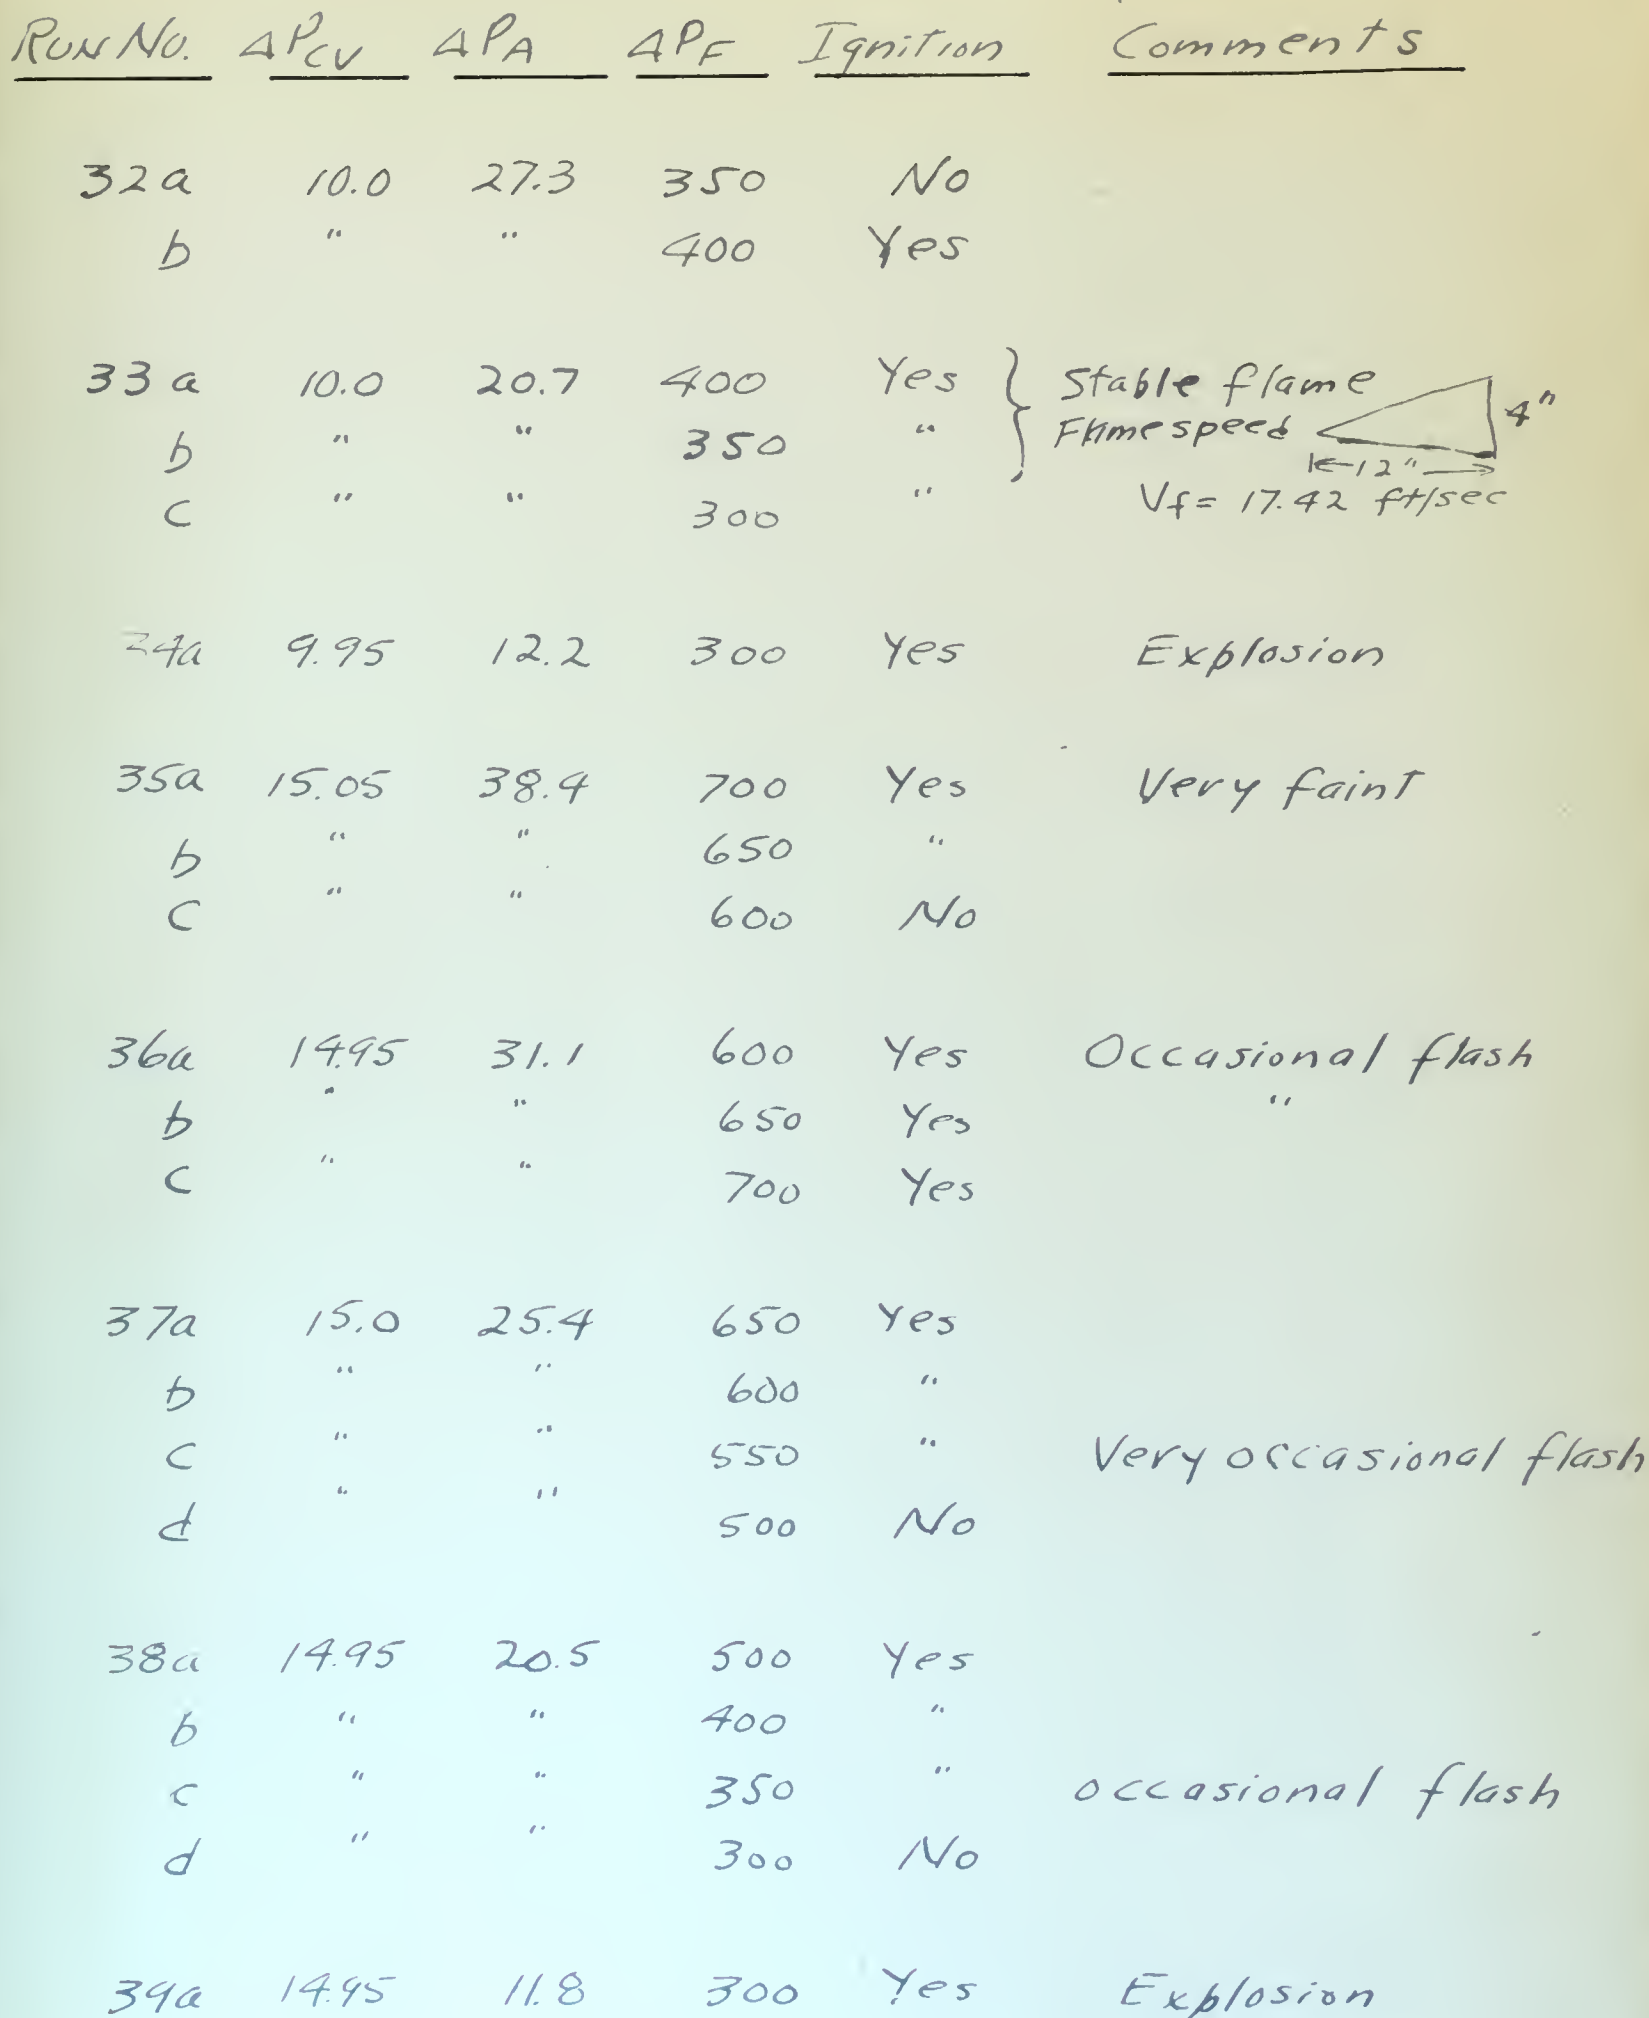 Run No. ΔPCV ΔPA ΔPF Ignition Comments
32a 10.0 27.3 350 No
b " " 400 Yes
33a 10.0 20.7 400 Yes } Stable flame
b " " 350 " Flame speed 4"
12"
c " " 300 " Vf = 17.42 ft/sec
34a 9.95 12.2 300 Yes Explosion
35a 15.05 38.4 700 Yes Very faint
b " " 650 "
c " " 600 No
36a 14.95 31.1 600 Yes Occasional flash
b " " 650 Yes "
c " " 700 Yes
37a 15.0 25.4 650 Yes
b " " 600 "
c " " 550 " Very occasional flash
d " " 500 No
38a 14.95 20.5 500 Yes
b " " 400 "
c " " 350 " occasional flash
d " " 300 No
39a 14.95 11.8 300 Yes Explosion